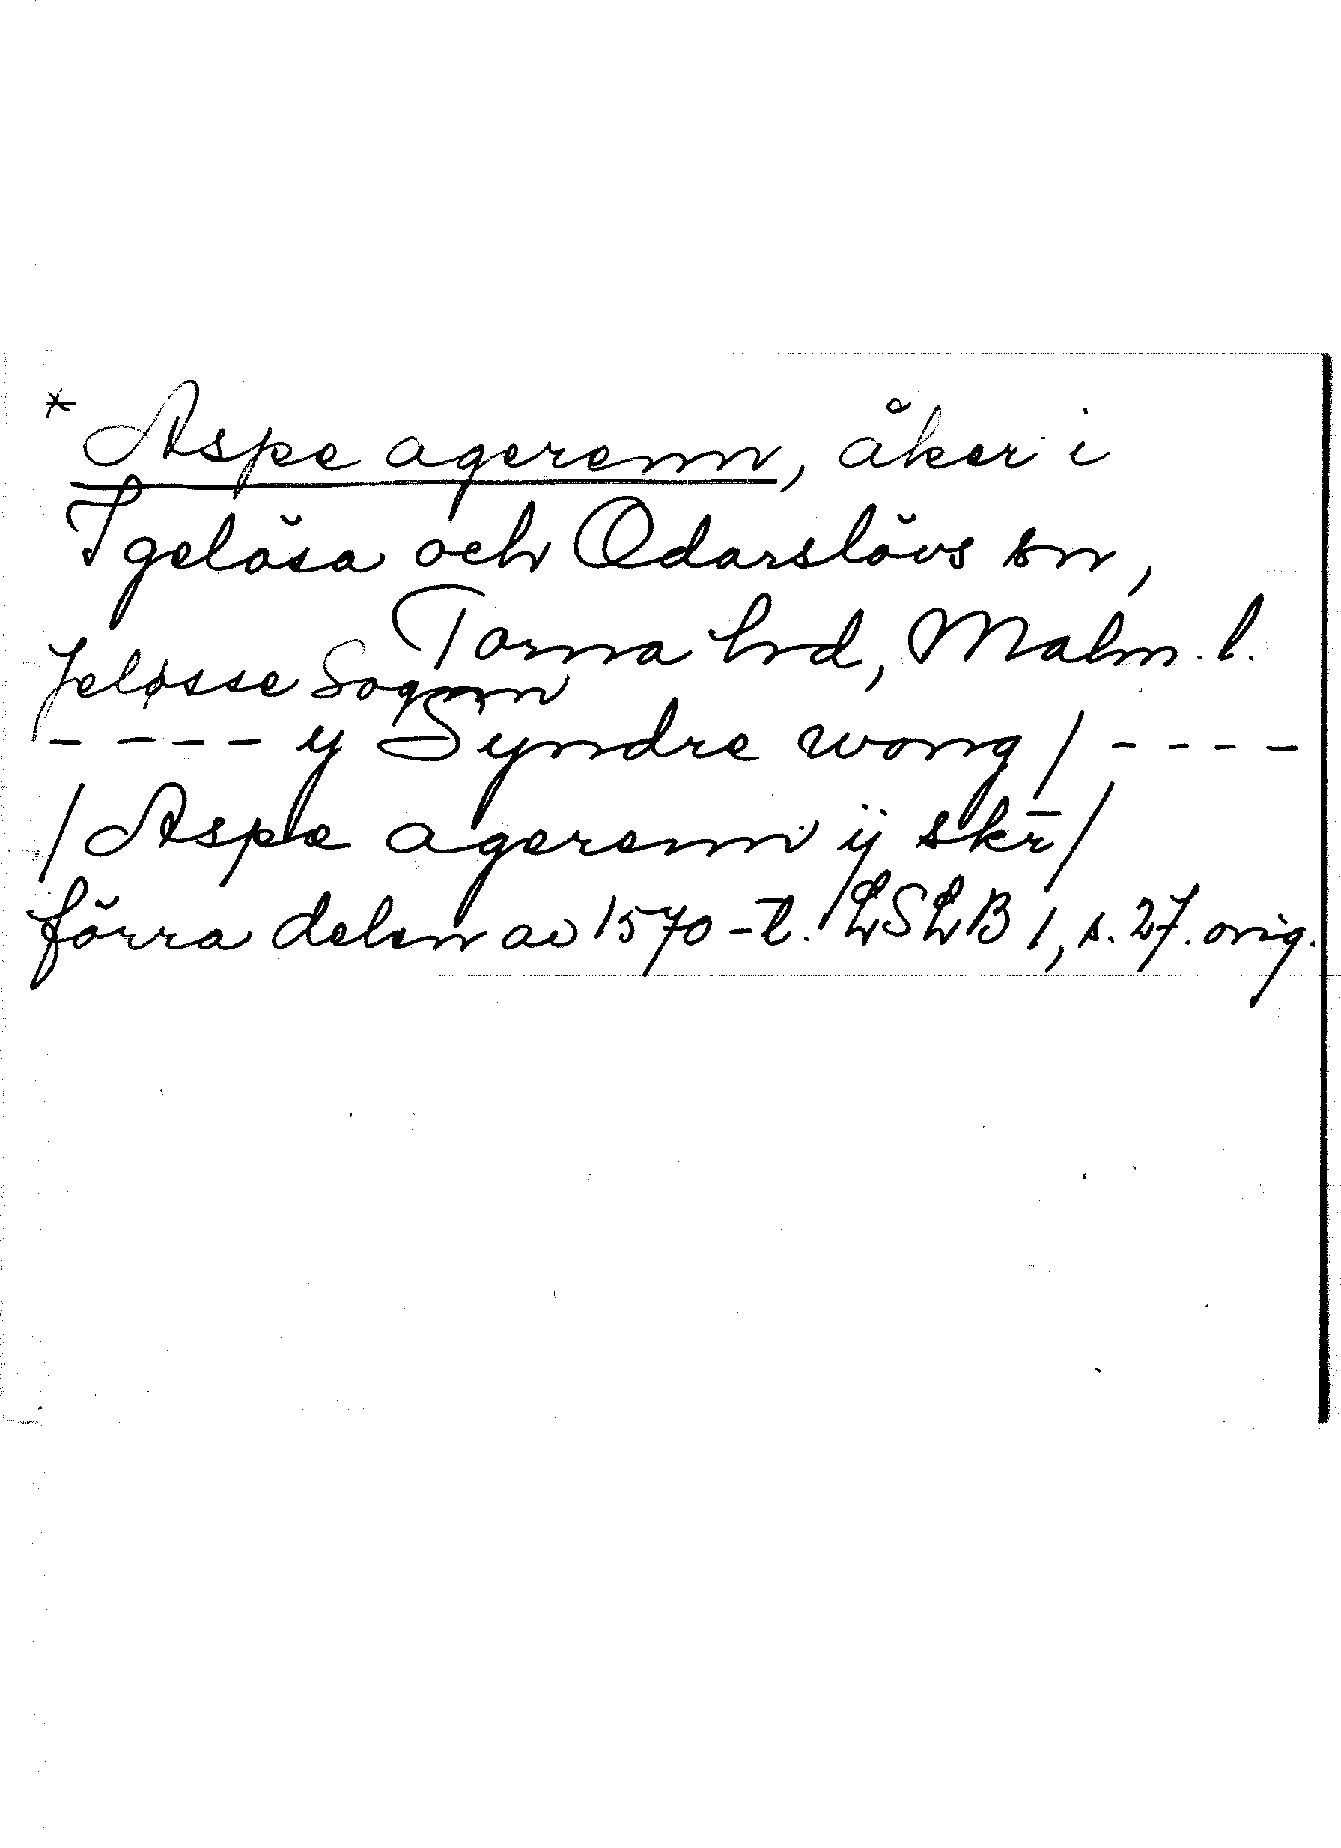 * Aspe agerenn, åker i
Igelösa och Odarslövs sn,
Torna hrd, Malm. l.
Jeløsse Sogn
---- y Syndre wong / ----
/ Aspe agerenn ij skr̄ /
förra delen av 1570-t. LSLB 1, s. 27. orig.